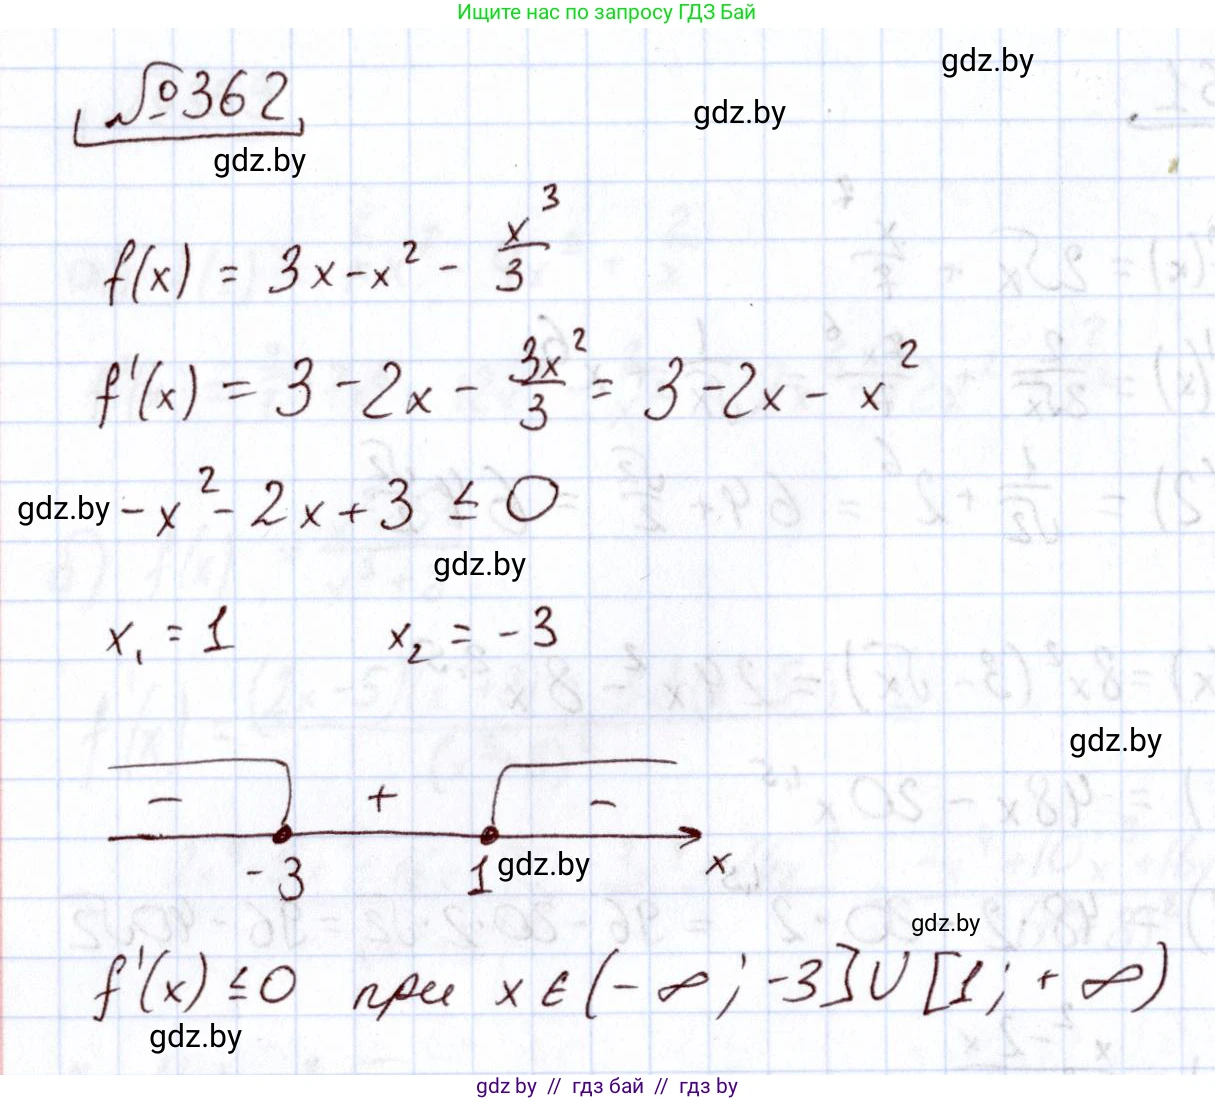 Ищите нас по запросу ГДЗ Бай
gdz.by
gdz.by
№362
gdz.by
f(x) = 3x - x² - x³/3
f'(x) = 3 - 2x - 3x²/3 = 3 - 2x - x²
gdz.by
-x² - 2x + 3 ≤ 0
gdz.by
x₁ = 1 x₂ = -3
gdz.by
- + -
-3 1 x
gdz.by
gdz.by
f'(x) ≤ 0 при x ∈ (-∞; -3] ∪ [1; +∞)
gdz.by
gdz.by // гдз бай // гдз by